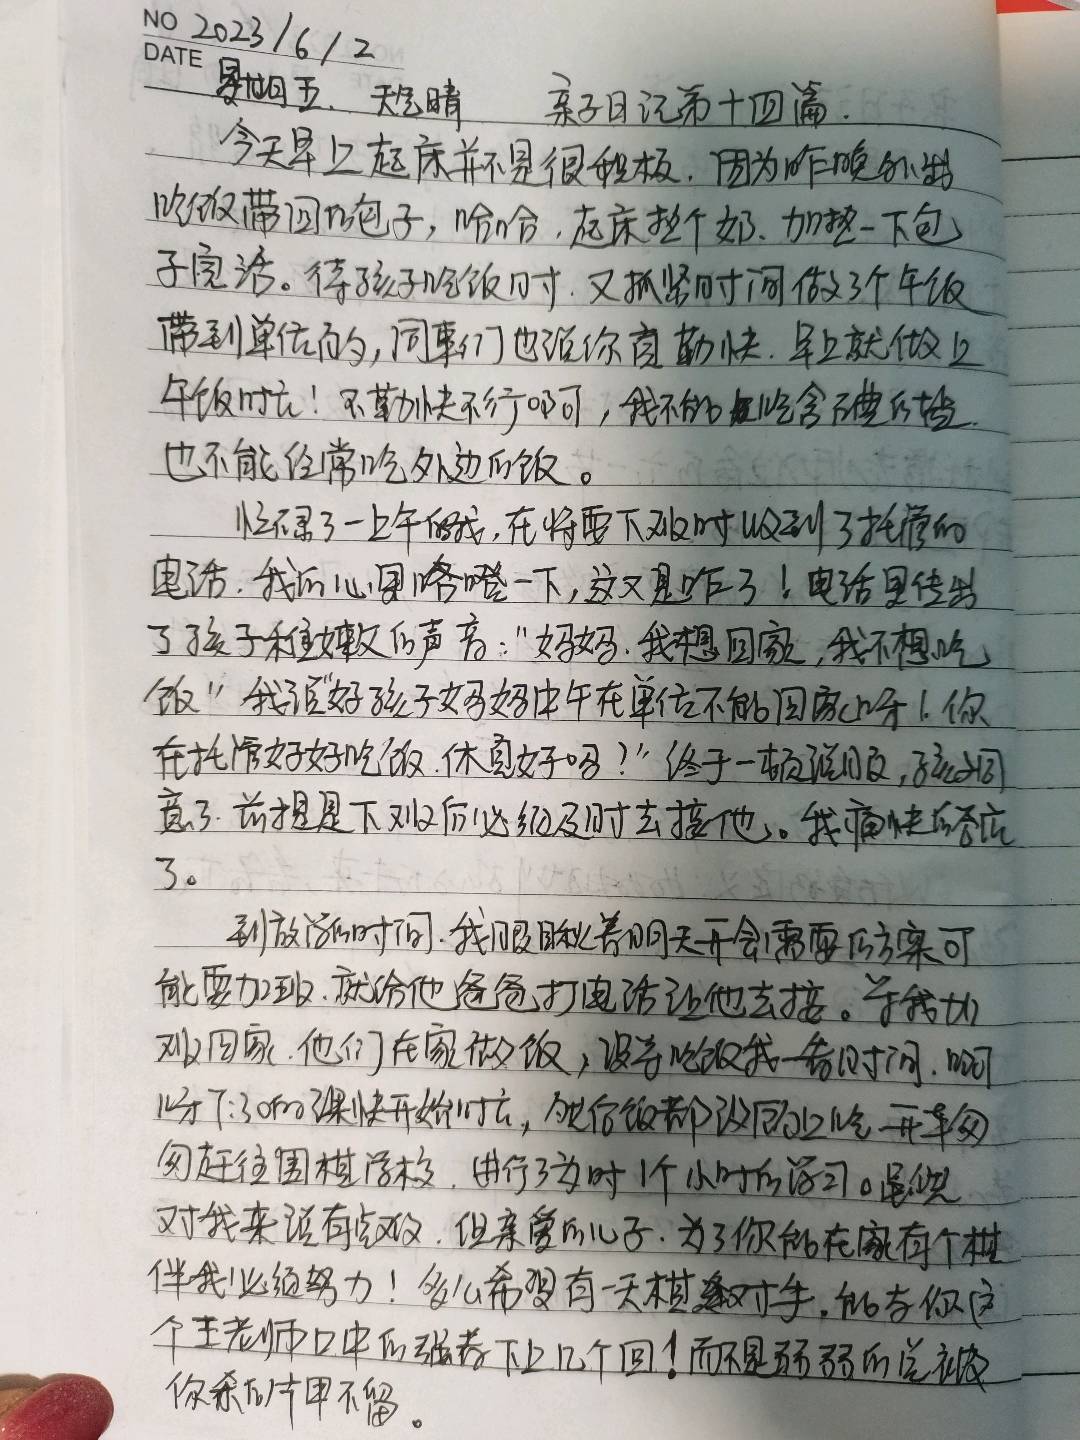 NO 2023/6/2
DATE
星期五. 天气晴 亲子日记第十四篇.
今天早上起床并不是很积极. 因为昨晚外出
吃饭带回的包子, 哈哈. 起床热个奶. 加热一下包
子完活。待孩子吃饭时. 又抓紧时间做了个午饭
带到单位的, 同事们也说你真勤快. 早上就做上
午饭时友! 不勤快不行啊, 我不能吃含碘的盐.
也不能经常吃外边的饭。
忙碌了一上午的我, 在将要下班时收到了托管的
电话. 我的心里咯噔一下, 这又是咋了! 电话里传出
了孩子稚嫩的声音: "妈妈. 我想回家, 我不想吃
饭" 我说"好孩子妈妈中午在单位不能回家呀! 你
在托管好好吃饭. 休息好吗?" 终于一顿说服, 孩子同
意了. 前提是下班后必须及时去接他。我痛快的答应
了。
到放学的时间. 我眼瞅着明天开会需要的方案可
能要加班. 就给他爸爸打电话让他去接。等我加
班回家. 他们在家做饭, 没等吃饭我一看时间. 啊
呀7:30的课快开始时友, 饭都没顾上吃 开车匆
匆赶往围棋学校. 进行了为时1个小时的学习。虽然
对我来说有点难. 但亲爱的儿子. 为了你能在家有个棋
伴我必须努力! 多么希望有一天棋逢对手. 能与你这
个王老师口中的强者下上几个回! 而不是弱弱的总被
你杀的片甲不留。